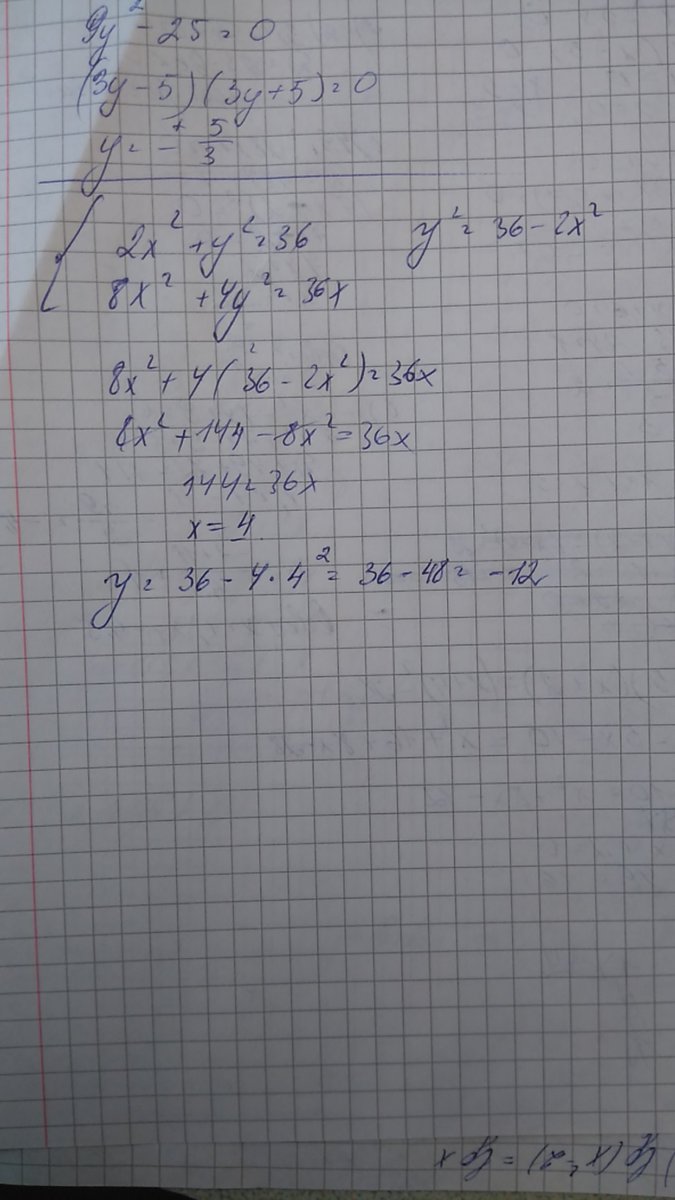 9y² - 25 = 0
(3y - 5)(3y + 5) = 0
y = ± 5/3
{ 2x² + y² = 36    y² = 36 - 2x²
8x² + 4y² = 36x
8x² + 4(36 - 2x²) = 36x
8x² + 144 - 8x² = 36x
144 = 36x
x = 4.
y = 36 - 4 · 4² = 36 - 48 = -12